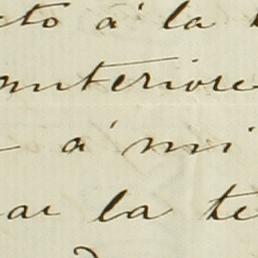 cto á la
anteriore
á mi
ar la te